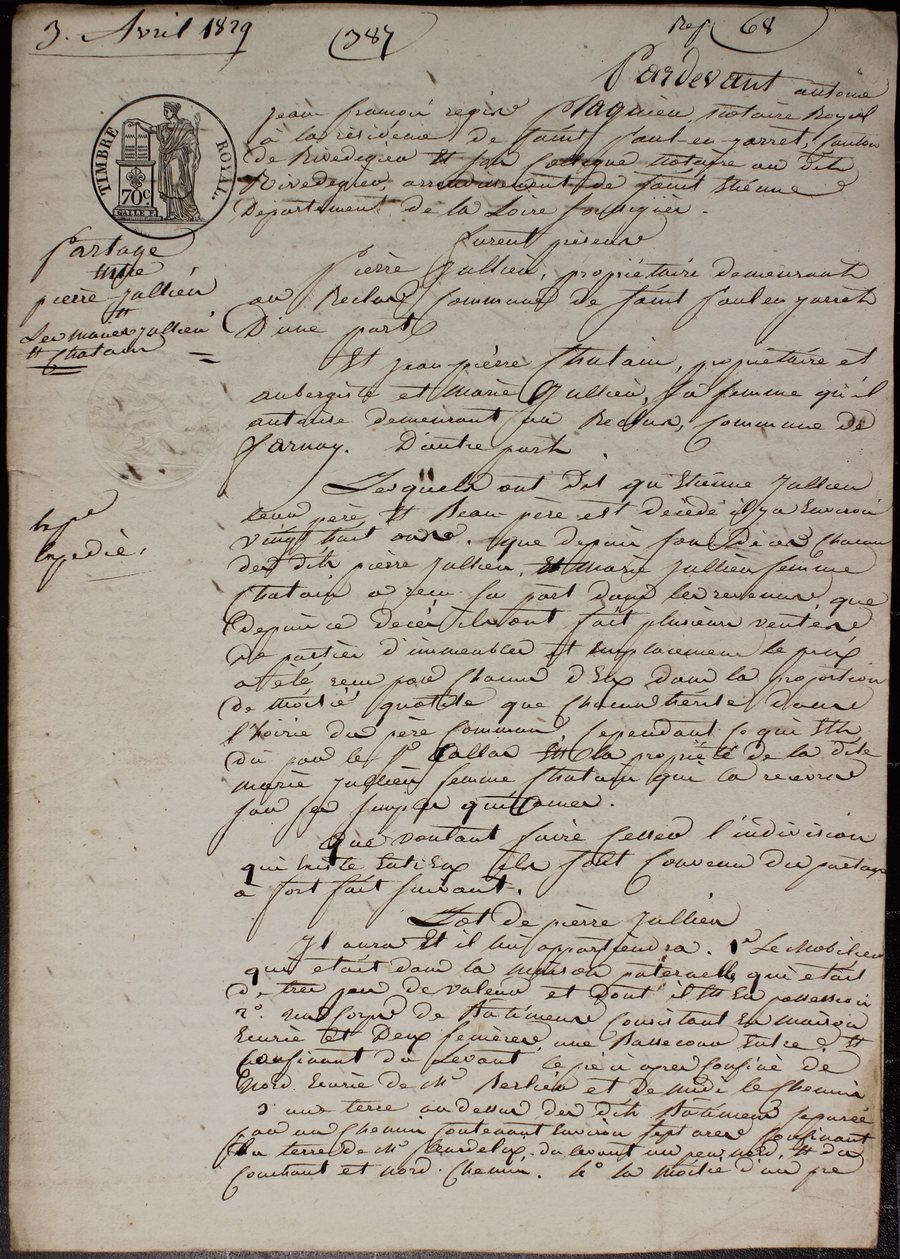 3. Avril 1829
(387)
Rep. 68
Pardevant antoine
jean françois regis Plagnieu, notaire Royal
à la résidence de saint Paul-en-jarret, canton
de Rivedegier Et son Collegue notaire au dit
Rivedegier, arrondissement de saint Etienne
Département de la Loire soussignés.
TIMBRE ROYAL.
70c
Partage
entre
pierre Jullien
Et
Les mariés jullien
Et Chatain
furent présens
Pierre Jullien, propriétaire demeurant
au Reclus Commune de saint Paul en jarrêt
D'une part
Et jean pierre Chatain, propriétaire et
aubergiste et Marie Jullien, sa femme qu'il
autorise demeurant au Reclus, Commune de
farnay. D'autre part.
Expedié.
Lesquels ont Dit qu'Etienne Jullien
leur père Et Beau-père est décédé il y a Environ
vingt huit ans. que depuis son Décès chacun
des dits pierre Jullien, Et marie Jullien femme
Chatain a reçu sa part dans les revenus que
Depuis ce décès ils ont fait plusieurs ventes
de parties d'immeubles et emplacemens le prix
a été reçu par chacun d'Eux dans la proportion
de Moitié quotité que chacun hérite dans
l'hoirie du père Commun, Cependant ce qui Est
dû par le Sr Est la propriété de la dite
marie Jullien femme Chatain qui la recevra
sur ses simples quittances.
Que voulant faire Cesser l'indivision
qui Existe Entr'Eux ils sont Convenu du partage
à fort fait suivant.
Lot de pierre Jullien
Il aura Et il lui appartiendra. 1o Le Mobilier
qui était dans la maison paternelle, qui était
De tres peu de valeur et Dont il Est En possession
2o. un Corps de Bâtimens Consistant En maison
Ecurie Et Deux fenières, une Bassecour Entre, Et
Confinant du Levant de
Nord. Ecurie de Mr et de midi le Chemin
3 une terre au dessus des dits Bâtimens separée
par un Chemin Contenant Environ sept ares Confinant
la terre de Mr du levant un peu nord, Et du
Couchant et nord. Chemin. 4o la Moitié d'un pré